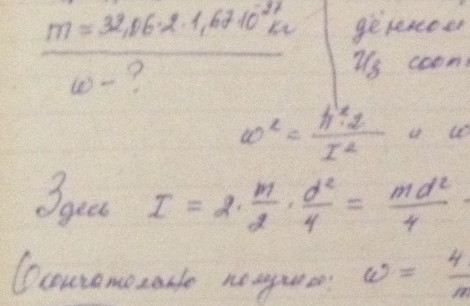 m = 32,06·2·1,67·10⁻²⁷ кг
дённом
ω - ?
Из соот
ω² = ħ²·2 / I² и ω
Здесь I = 2· m/2 · d²/4 = md²/4
Окончательно получим: ω = 4